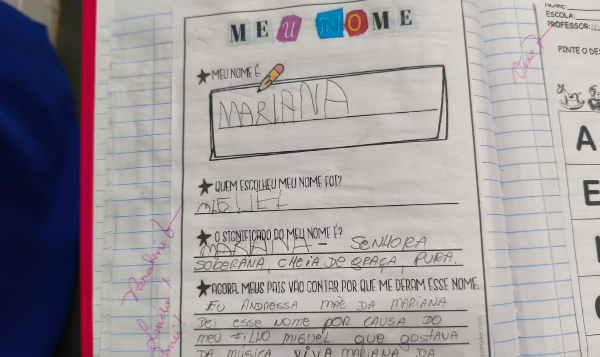 MEU NOME
★ MEU NOME É
MARIANA
★ QUEM ESCOLHEU MEU NOME FOI?
MIGUEL
★ O SIGNIFICADO DO MEU NOME É?
MARIANA - SENHORA
SOBERANA, CHEIA DE GRAÇA, PURA.
★ AGORA, MEUS PAIS VÃO CONTAR POR QUE ME DERAM ESSE NOME.
EU ANDRESSA MÃE DA MARIANA
DEI ESSE NOME POR CAUSA DO
MEU FILHO MIGUEL QUE GOSTAVA
DA MUSICA VIVA MARIANA DA
Parabéns
NOME:
ESCOLA:
PROFESSOR:
PINTE O DES
A
E